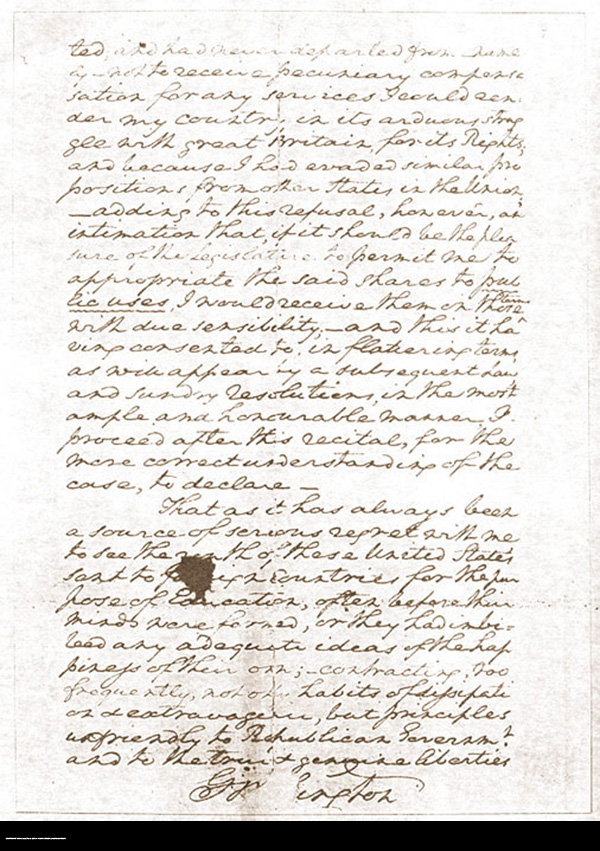 ted, and had never departed from—name
ly—not to receive pecuniary compen
sation for any services I could ren
der my country in its arduous strug
gle with great Britain, for its Rights;
and because I had evaded similar pro
positions from other States in the Union,
—adding to this refusal, however, an
intimation that, if it should be the plea
sure of the Legislature to permit me to
appropriate the said shares to pub
lic uses, I would receive them on those terms
with due sensibility;—and this it ha
ving consented to, in flattering terms,
as will appear by a subsequent Law
and sundry resolutions, in the most
ample and honourable manner, I
proceed after this recital, for the
more correct understanding of the
case, to declare—
That as it has always been
a source of serious regret with me
to see the youth of these United States
sent to foreign countries for the pur
pose of Education, often before their
minds were formed, or they had imbi-
bed any adequate ideas of the hap
piness of their own;—contracting, too
frequently, not only habits of dissipati
on & extravagence, but principles
unfriendly to Republican Governmt.
and to the true & genuine liberties